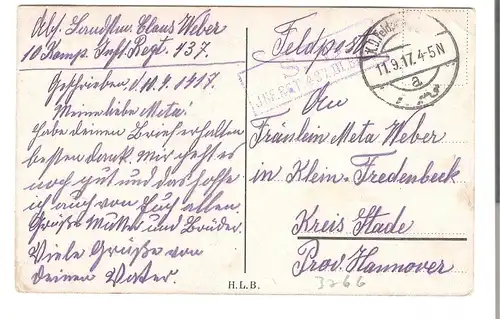 Abs. Lerndstm. Claus Weber
10 Komp. Inft. Regt. 137.
Geschrieben d. 10.9.1917.
Meine liebe Meta!
Habe deinen Brief erhalten
besten dank. Mir geht es
noch gut und das hoffe
ich auch von Euch allen
Grüße Mutter und Brüder.
Viele Grüße von
deinen Vater.
Feldpost
11.9.17. 4-5N
a
An
Fräulein Meta Weber
in Klein-Fredenbeck
Kreis Stade
Prov. Hannover
3266
H.L.B.